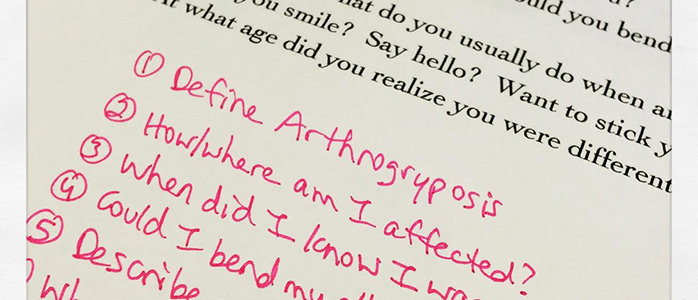 d?
uld you bend
at do you usually do when a
you smile? Say hello? Want to stick y
t what age did you realize you were different
① Define Arthrogryposis
② How/where am I affected?
③ When did I know I wa
④ Could I bend my
⑤ Describe
Wh